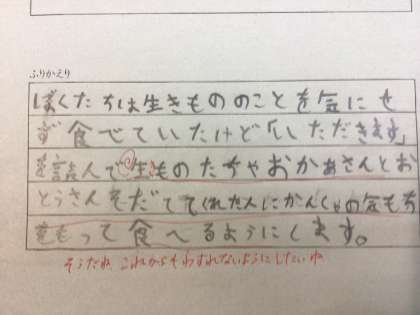 ふりかえり
ぼくたちは生きもののことを気にせ
ず食べていたけど「いただきます」
を読んで生きものたちやおかあさんとお
とうさんそだててくれた人にかんしゃの気もち
をもって食べるようにします。
そうだね これからもわすれないようにしたいね